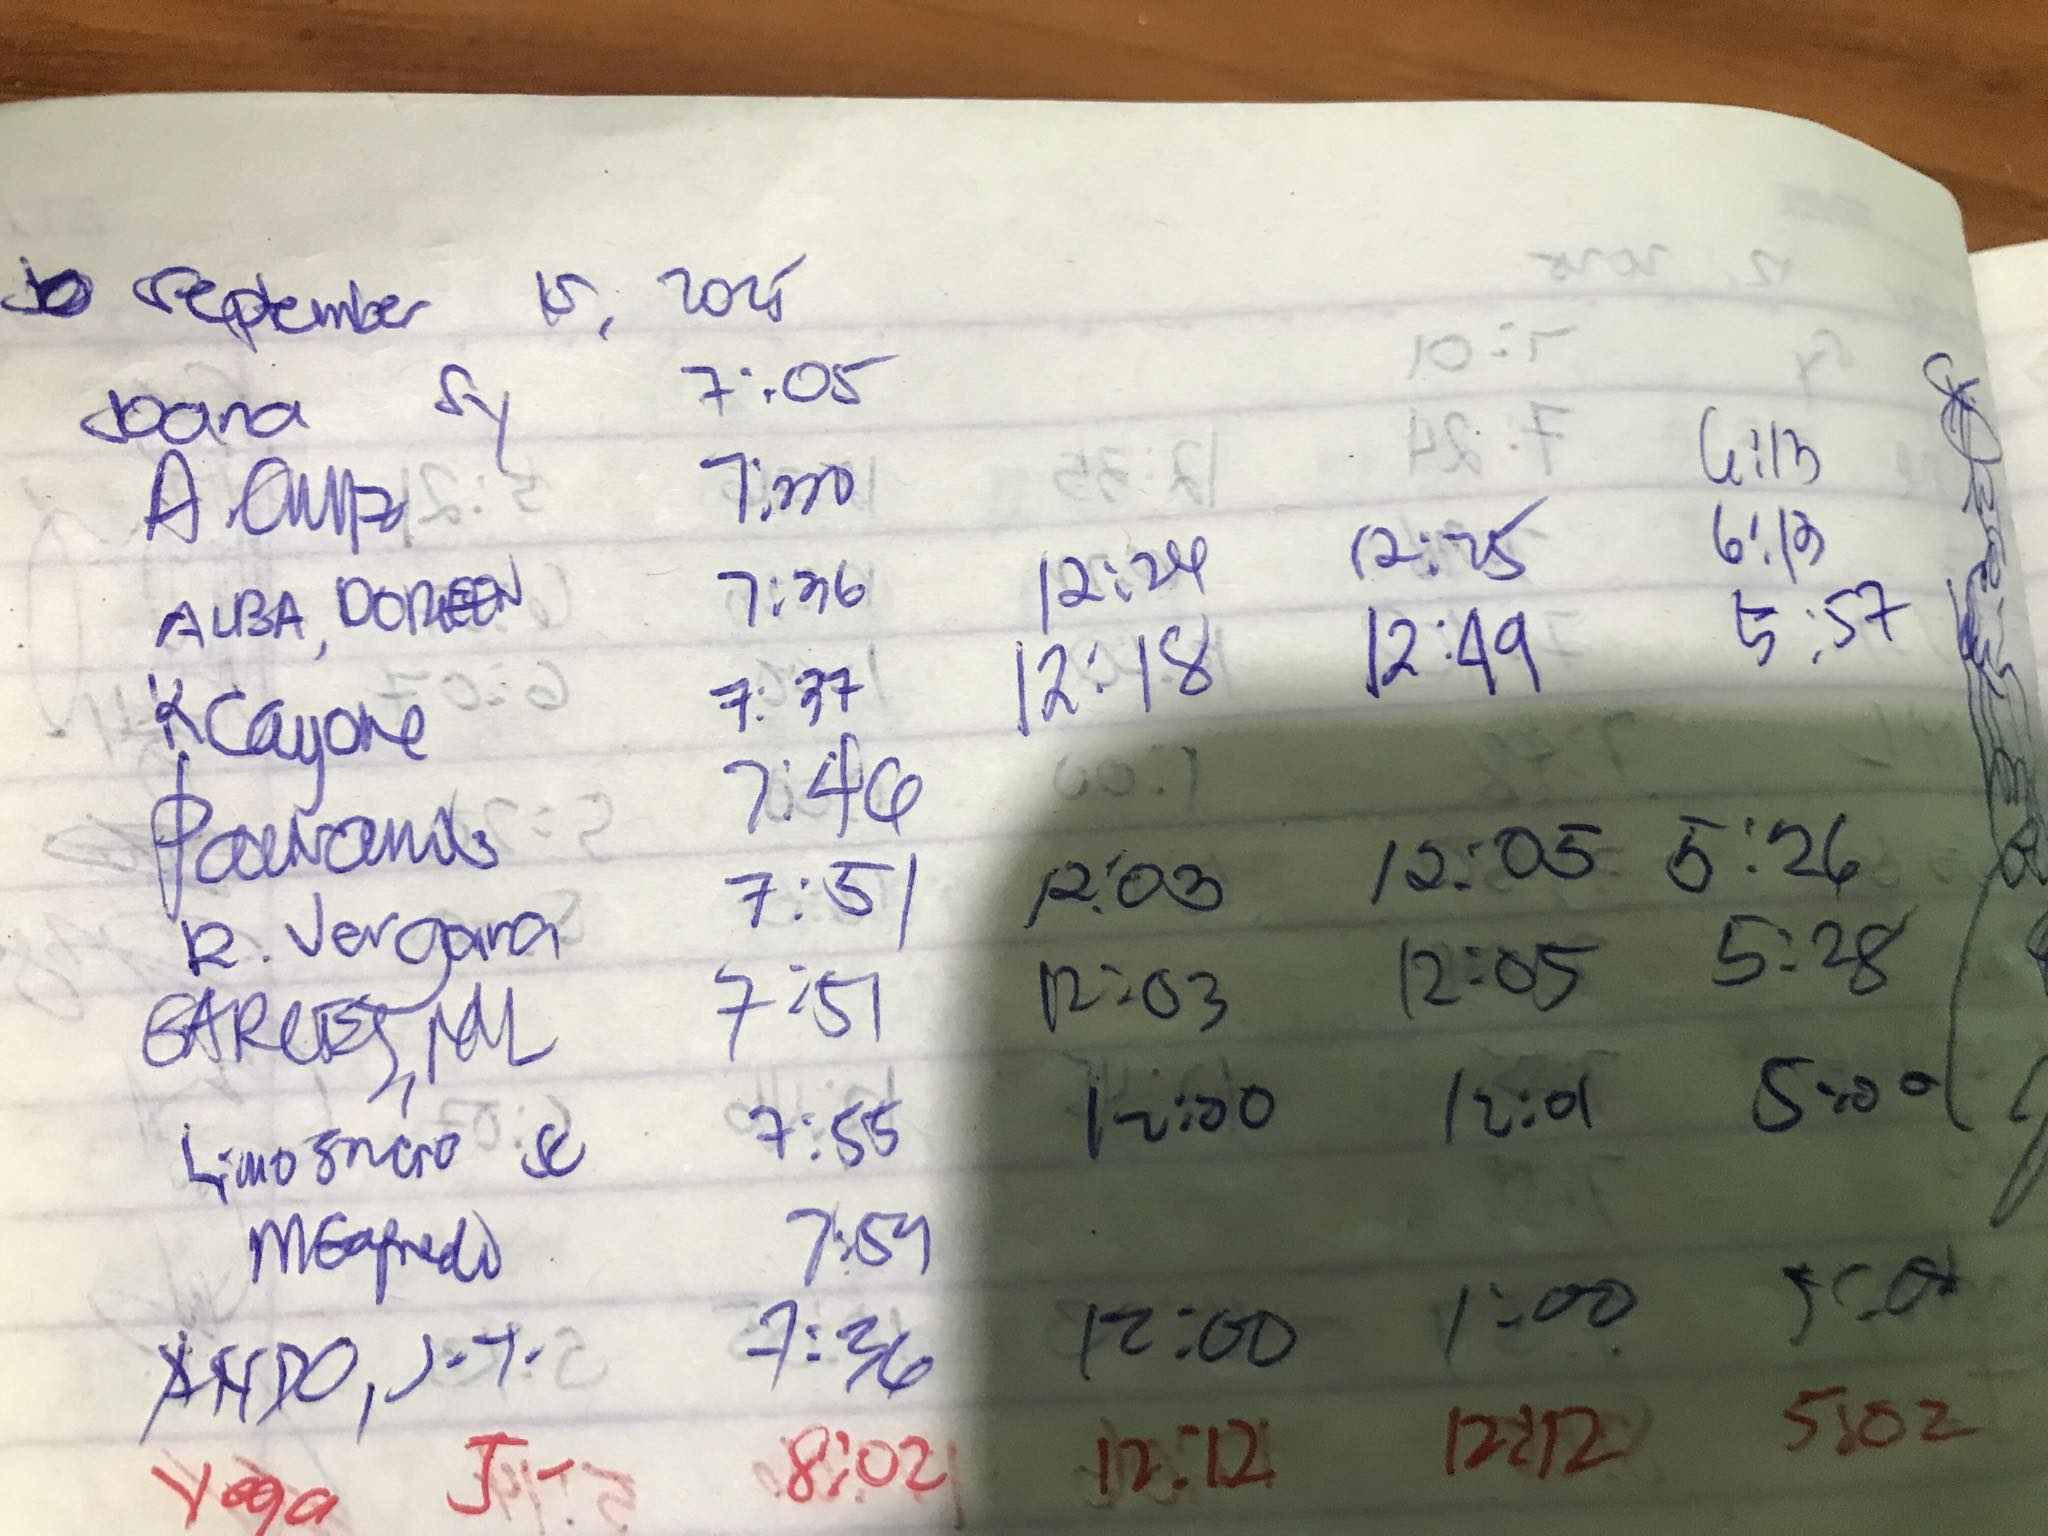 September 15, 2025
Joana Sy 7:05
A. 7:30 6:13
ALBA, DOREEN 7:36 12:24 12:25 6:13
K Cayone 7:37 12:18 12:49 5:57
7:46
R. Vergara 7:51 12:03 12:05 5:26
GARCES, NL 7:51 12:03 12:05 5:28
Limosnero 7:55 12:00 12:01 5:00
7:59
ANDO, J.T. 7:36 12:00 1:00
Vega J. 8:02 12:12 12:12 5:02